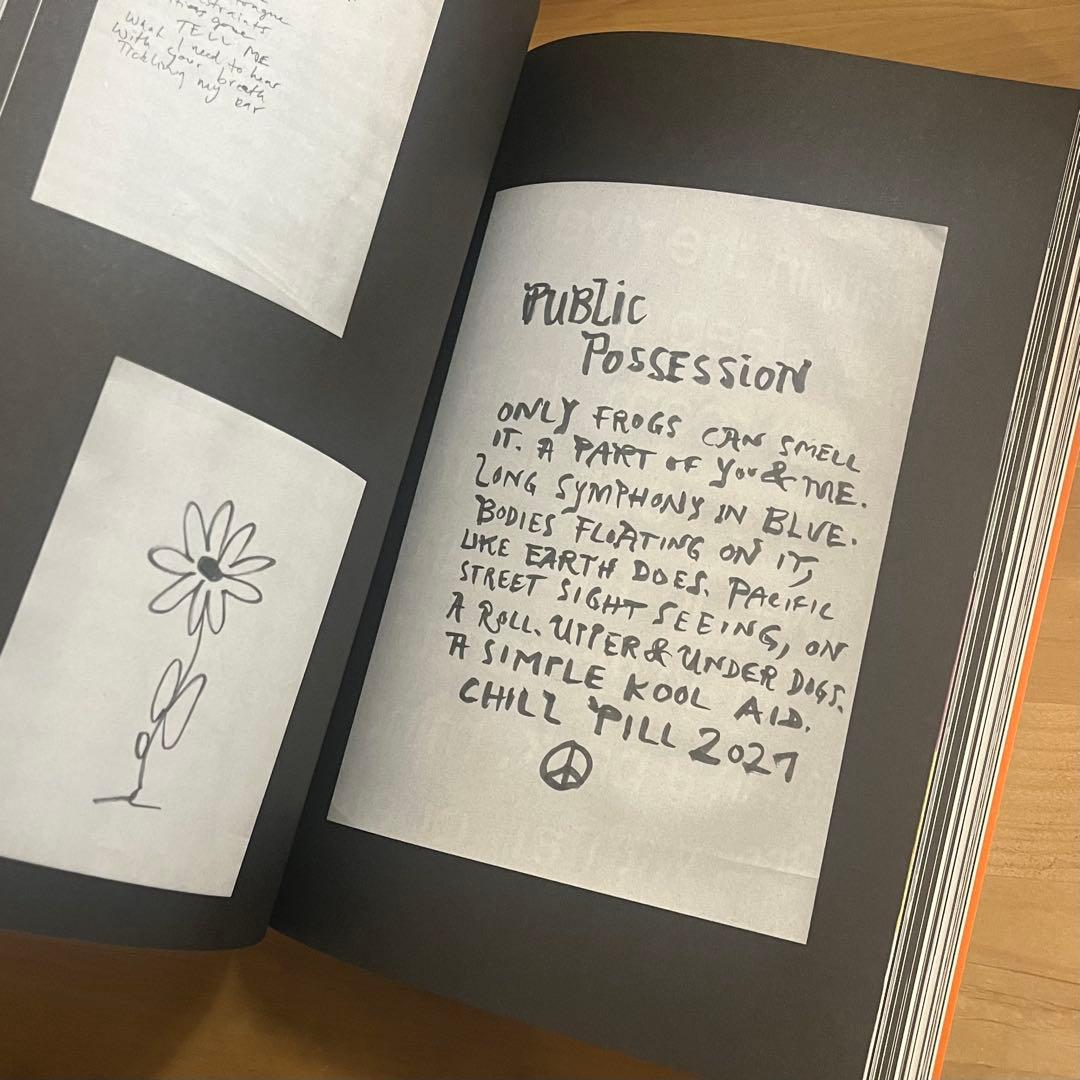 tongue
gone
TELL ME
What I need to hear
With your breath
Tickling my ear
PUBLIC
POSSESSION
ONLY FROGS CAN SMELL
IT. A PART OF YOU & ME.
LONG SYMPHONY IN BLUE.
BODIES FLOATING ON IT,
LIKE EARTH DOES. PACIFIC
STREET SIGHT SEEING, ON
A ROLL. UPPER & UNDER DOGS.
A SIMPLE KOOL AID.
CHILL PILL 2021